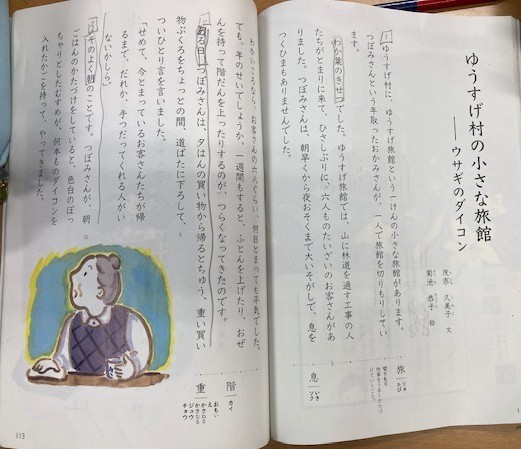 ゆうすげ村の小さな旅館
――ウサギのダイコン
茂市 久美子 文
菊池 恭子 絵
ゆうすげ村に、ゆうすげ旅館という一けんの小さな旅館があります。
つぼみさんという年取ったおかみさんが、一人で旅館を切りもりしてい
ます。
わか葉のきせつでした。ゆうすげ旅館では、山に林道を通す工事の人
たちがとまりに来て、ひさしぶりに、六人ものたいざいのお客さんがあ
りました。つぼみさんは、朝早くから夜おそくまで大いそがしで、息を
つくひまもありませんでした。
旅 たび
切りもり
息 いき
ソク
わかいころなら、お客さんの六人ぐらい、何日とまっても平気でした。
でも、年のせいでしょうか。一週間もすると、ふとんを上げたり、おぜ
んを持って階だんを上ったりするのが、つらくなってきたのです。
ある日、つぼみさんは、夕はんの買い物から帰るとちゅう、重い買い
物ぶくろをちょっとの間、道ばたに下ろして、
ついひとり言を言いました。
「せめて、今とまっているお客さんたちが帰
るまで、だれか、手つだってくれる人がい
ないかしら。」
そのよく朝のことです。つぼみさんが、朝
ごはんのかたづけをしていると、色白のぽっ
ちゃりとしたむすめが、何本ものダイコンを
入れたかごを持って、やってきました。
階 カイ
重 おもい
え
かさねる
かさなる
ジュウ
チョウ
113